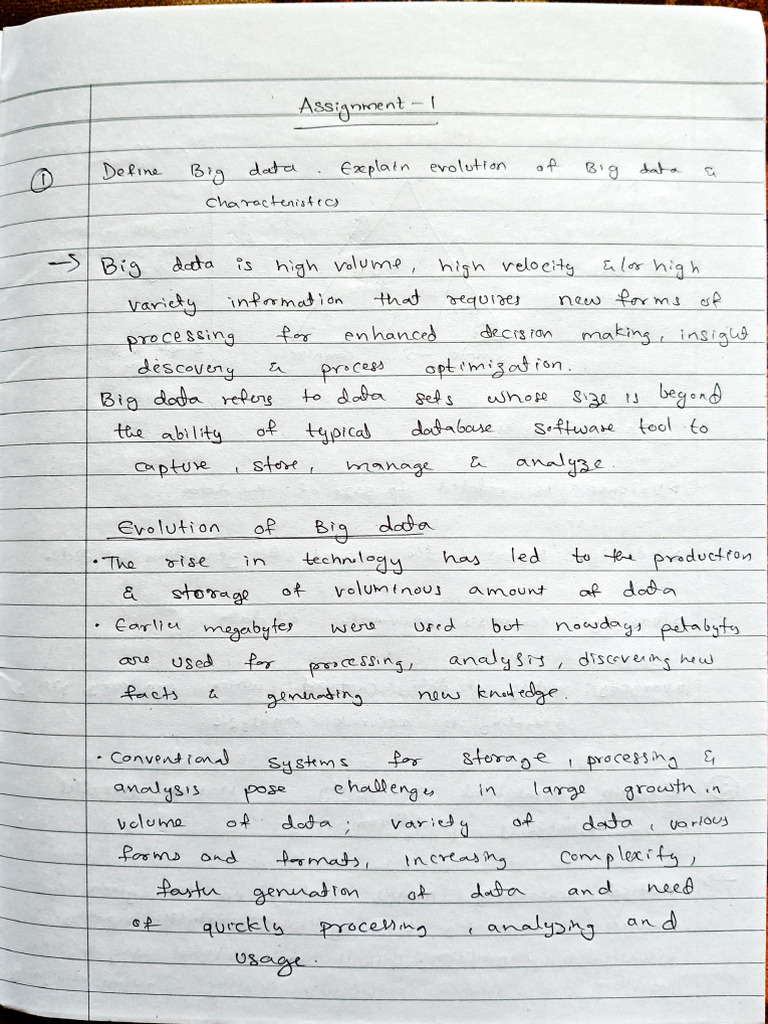 Assignment - 1
① Define Big data. Explain evolution of Big data &
Characteristics
→ Big data is high volume, high velocity &/or high
variety information that requires new forms of
processing for enhanced decision making, insight
discovery & process optimization.
Big data refers to data sets whose size is beyond
the ability of typical database software tool to
capture, store, manage & analyze.
Evolution of Big data
• The rise in technology has led to the production
& storage of voluminous amount of data
• Earlier megabytes were used but nowdays petabytes
are used for processing, analysis, discovering new
facts & generating new knowledge.
• Conventional systems for storage, processing &
analysis pose challenges in large growth in
volume of data; variety of data, various
forms and formats, increasing complexity,
faster generation of data and need
of quickly processing, analyzing and
usage.